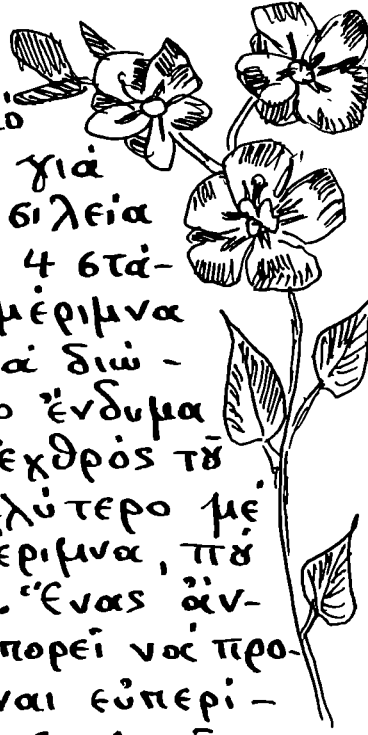 ό
γιά
σιλεία
4 στά-
μέριμνα
ά διώ-
ο ἔνδυμα
ἐχθρός τȣ͂
λύτερο μέ
έριμνα, πȣ́
. Ἕνας ἄν-
πορεῖ νά προ-
ναι εὐπερί-